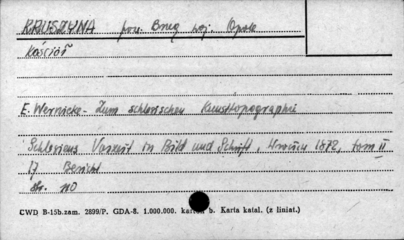 KRUSZYNA pow. Brzeg woj. Opole
Kościół
E. Wernicke - Zum schlesischen Kunsttopographie
Schlesiens Vorzeit in Bild und Schrift, Wrocław 1872, tom II
17 Bericht
str. 110
CWD B-15b.zam. 2899/P. GDA-8. 1.000.000. b. Karta katal. (z liniat.)